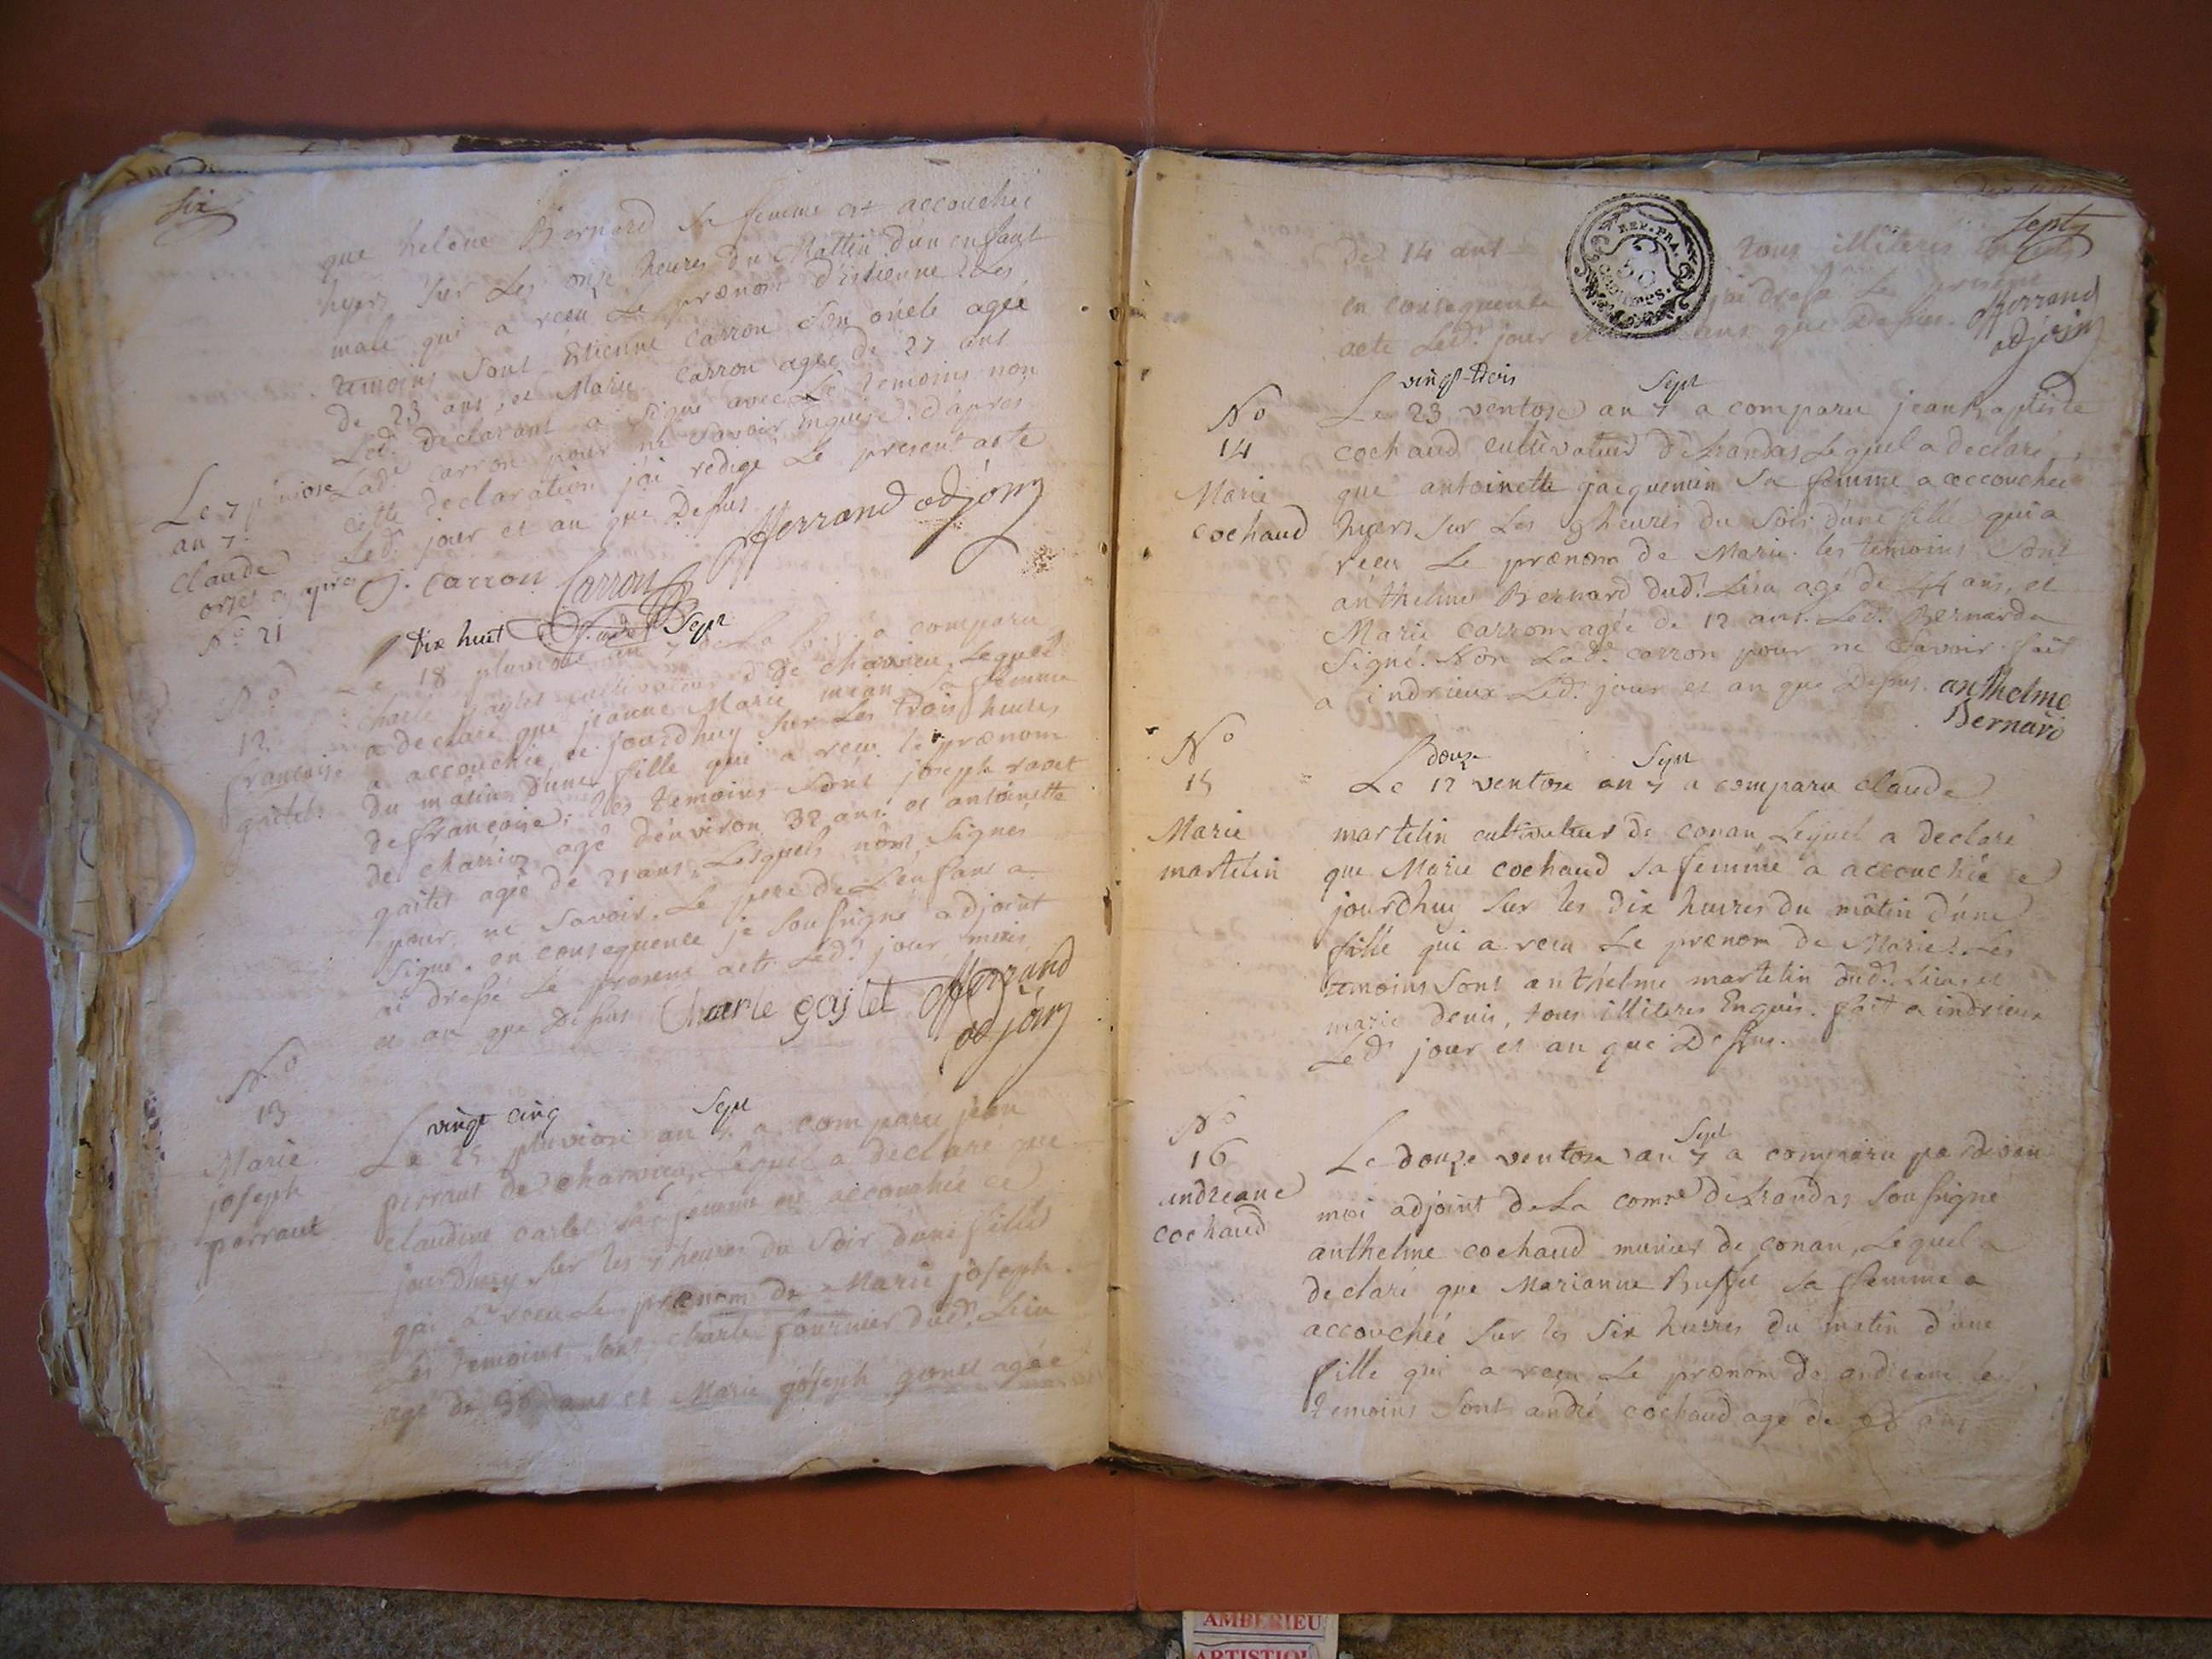 six
que helene Bernard sa femme est accouchée
hyers sur Les onze heures du Mattin d'un enfant
male qui a recu Le prenom d'Estienne Les
temoins sont Etienne Carron son oncle agée
de 23 ans, et Marie Carron agée de 27 ans
Led. declarant a signé avec Le temoins non
Lad.e carron pour ne savoir Enquise. d'apres
cette declaration j'ai redigé Le present acte
Led. jour et an que Dessus
Le 7 pluviose
an 7.
Claude
orset cy apres
N° 21
Herrand adjoin
J. Carron Carron
dix huit Sept
Le 18 pluviose an 7 a comparu
N°
12.
francoise
gaitet.
Charle gaytet cultivateur de charvieu, Lequel
a declaré que jeanne Marie sa femme
a accouchée ce jourdhuy sur Les trois heures
du matin d'une fille qui a recu le prenom
de francoise; Les temoins sont joseph ravet
de charvieu agé denviron 32 ans. et antoinette
gaitet agée de 21 ans, Lesquels n'ont signés
pour ne savoir. Le pere de L'enfant a
signé. en consequence je soussigné adjoint
ai dressé Le present acte Led. jour, mois
et an que Dessus Charle gaytet Herrand
adjoin
N°
13
Marie
joseph
perraut
vingt cinq Sept
Le 25 pluviose an 7. a comparu jean
perraut de charvieu, Lequel a declaré que
claudine carlet sa femme est accouchée ce
jourdhuy sur les 7 heures du soir d'une fille
qui a recu Le prenom de Marie joseph.
Les temoins sont charle fournier dud. Lieu
agé de 36 ans et Marie joseph gonet agée
Sept
de 14 ans tous illiteres
en consequence j'ai dressé Le present
acte Led. jour et an que Dessus. Herrand
adjoin
REP. FRA.
50
CENTIMES.
N°
14
Marie
cochaud
vingt-trois Sept
Le 23 ventose an 7 a comparu jean Baptiste
cochaud cultivateur de Leandas Lequel a declaré
que antoinette jacquemin sa femme a accouchée
hyers sur Les 9 heures du soir d'une fille qui a
recu Le prenom de Marie. les temoins sont
anthelme Bernard dud. Lieu agé de 44 ans, et
Marie Carron agée de 12 ans. Led. Bernard a
signé. Non Lad.e carron pour ne savoir. fait
a indrieux Led. jour et an que Dessus. anthelme
Bernard
N°
15
Marie
martelin
douze Sept
Le 12 ventose an 7 a comparu claude
martelin cultivateur de conan Lequel a declaré
que Marie cochaud sa femme a accouchée ce
jourdhuy sur les dix heures du matin d'une
fille qui a recu Le prenom de Marie. Les
temoins sont anthelme martelin dud. Lieu, et
marie denis, tous illiteres Enquis. fait a indrieux
Led. jour et an que Dessus.
N°
16
andreane
cochaud
Sept
Le douze ventose an 7 a comparu pardevan
moi adjoint de La comne de Leandas soussigné
anthelme cochaud munier de conan, Lequel a
declaré que Marianne Buffet sa femme a
accouchée sur les six heures du matin d'une
fille qui a recu Le prenom de andreane les
temoins sont andré cochaud agé de ans
AMBERIEU
ARTISTIQUE